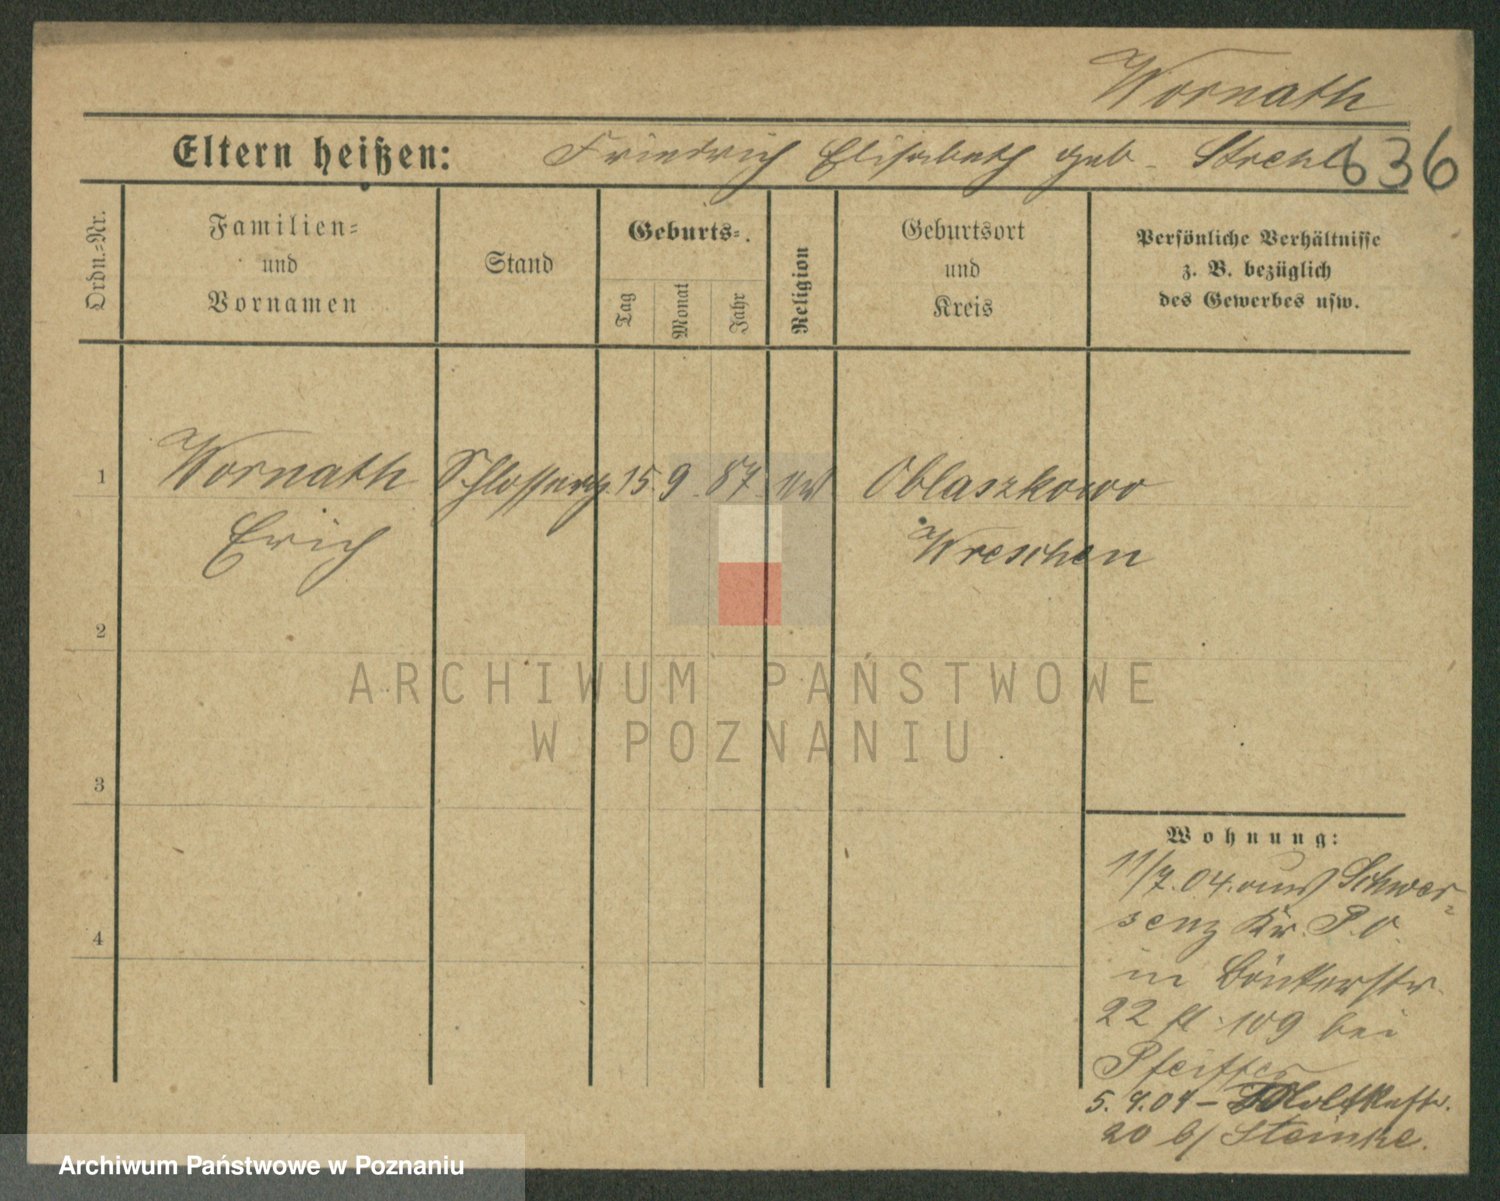 Wornath
Eltern heißen: Friedrich Elisabeth geb. Strehl
636
Ordn.-Nr.
Familien-
und
Vornamen
Stand
Geburts-
Tag
Monat
Jahr
Religion
Geburtsort
und
Kreis
Persönliche Verhältnisse
z. B. bezüglich
des Gewerbes usw.
1 Wornath Schlosser 15 9 87 ev Oblaszkowo
Erich Wreschen
2
3
4
Wohnung:
11/7.04. aus Schwer-
senz Kr. P. O.
in
22 109 bei
Pfeiffer
5. 9.04 - Moltkestr.
20 b/ Steinke.
ARCHIWUM PAŃSTWOWE
W POZNANIU
Archiwum Państwowe w Poznaniu